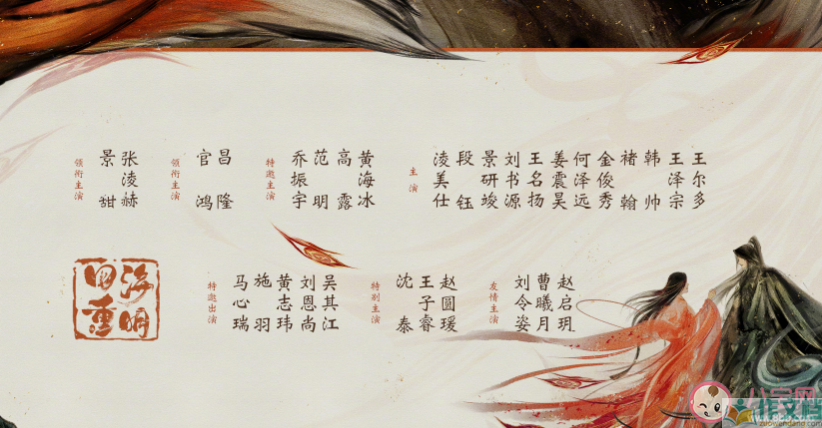 领衔主演
景甜
张凌赫
领衔主演
官鸿
昌隆
特邀主演
乔振宇
范明
高露
黄海冰
主演
凌美仕
段钰
景研竣
刘书源
王名扬
姜震昊
何泽远
金俊秀
褚翰
韩帅
王泽宗
王尔多
四海重明
特邀出演
马心瑞
施羽
黄志玮
刘恩尚
吴其江
特别主演
沈泰
王子睿
赵圆瑗
友情主演
刘令姿
曹曦月
赵启玥
八宝网
作文档